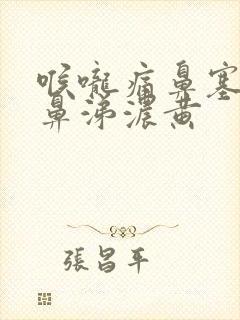 喉嚨痛鼻塞
鼻涕濃黃
張昌平